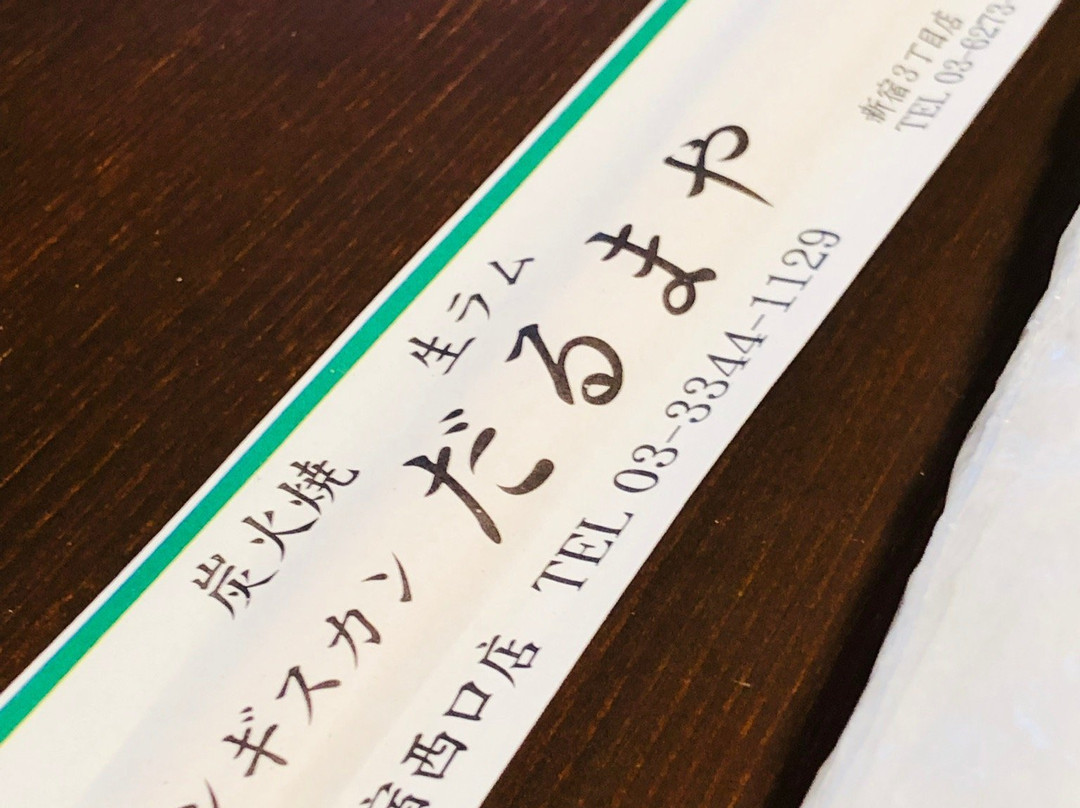 炭火焼 生ラム
ンギスカン だるまや
宿西口店 TEL 03-3344-1129
新宿3丁目店
TEL 03-6273-